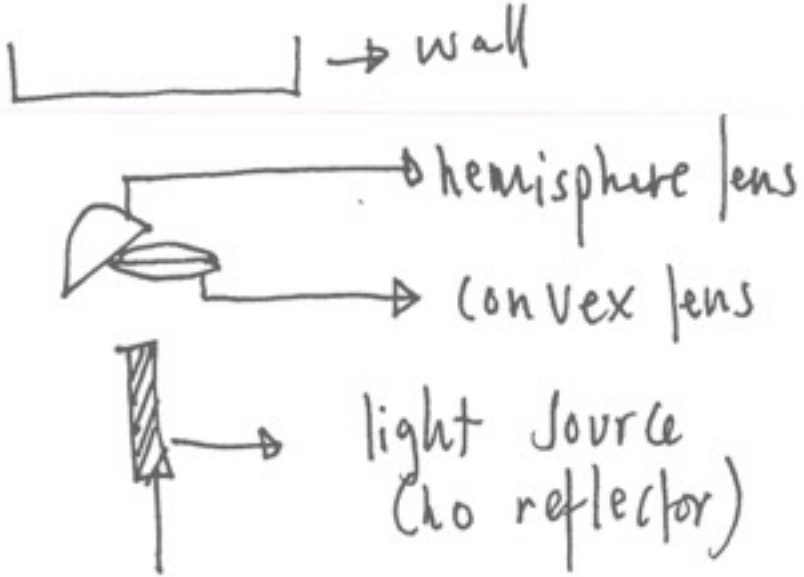 wall
hemisphere lens
convex lens
light source
(no reflector)